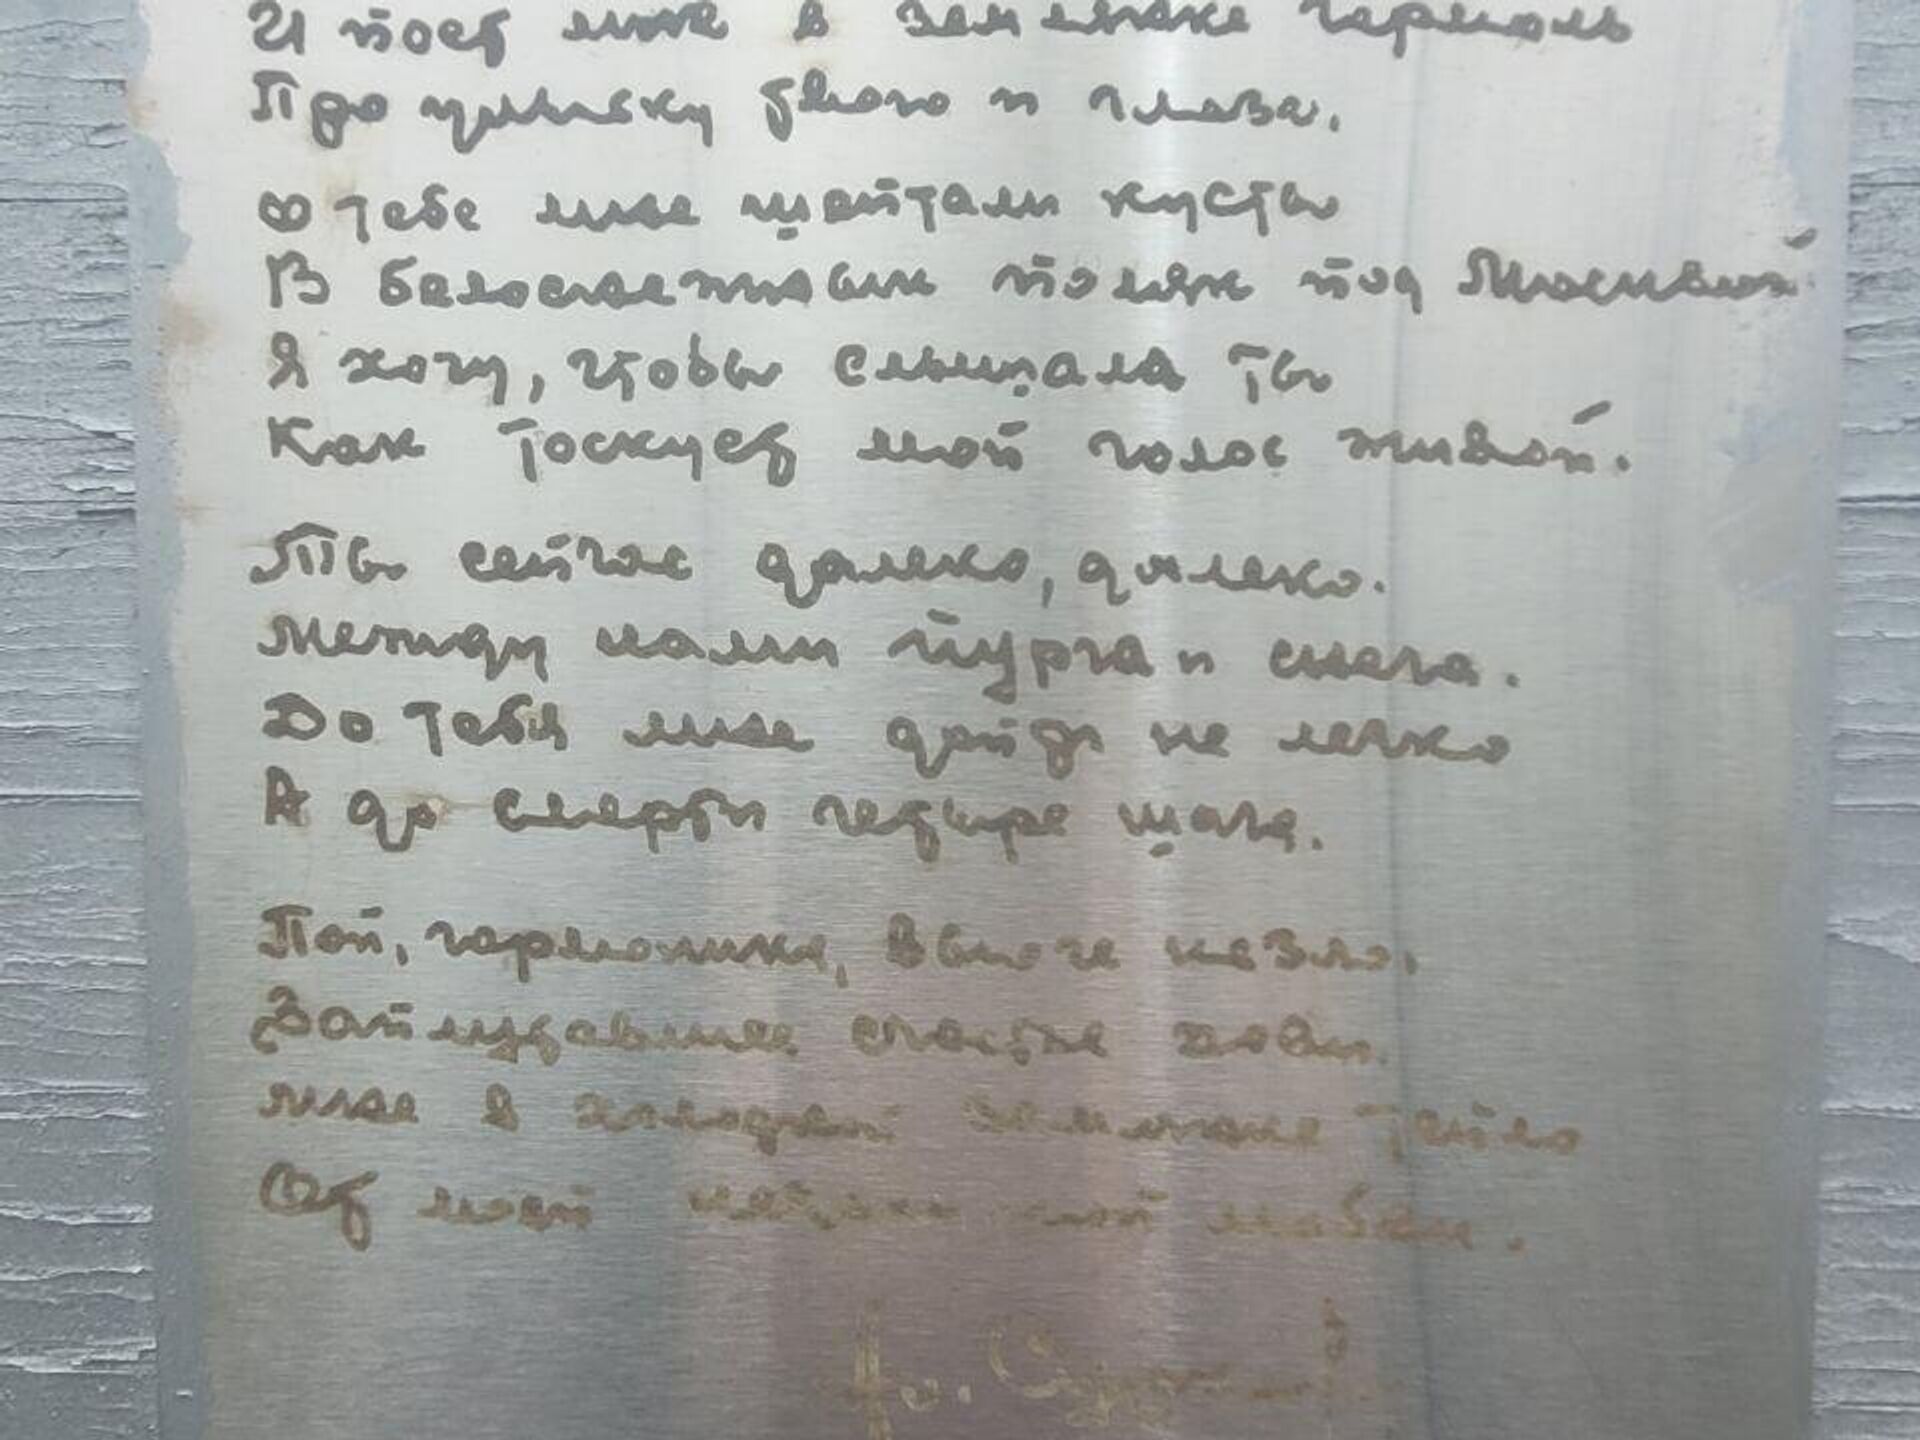 И поёт мне в землянке гармонь
Про улыбку твою и глаза.
О тебе мне шептали кусты
В белоснежных полях под Москвой
Я хочу, чтобы слышала ты
Как тоскует мой голос живой.
Ты сейчас далеко, далеко.
Между нами пурга и снега.
До тебя мне дойти не легко
А до смерти четыре шага.
Пой, гармоника, вьюге назло,
Заплутавшее счастье зови.
Мне в холодной землянке тепло
От моей негасимой любви.
А. Сурков